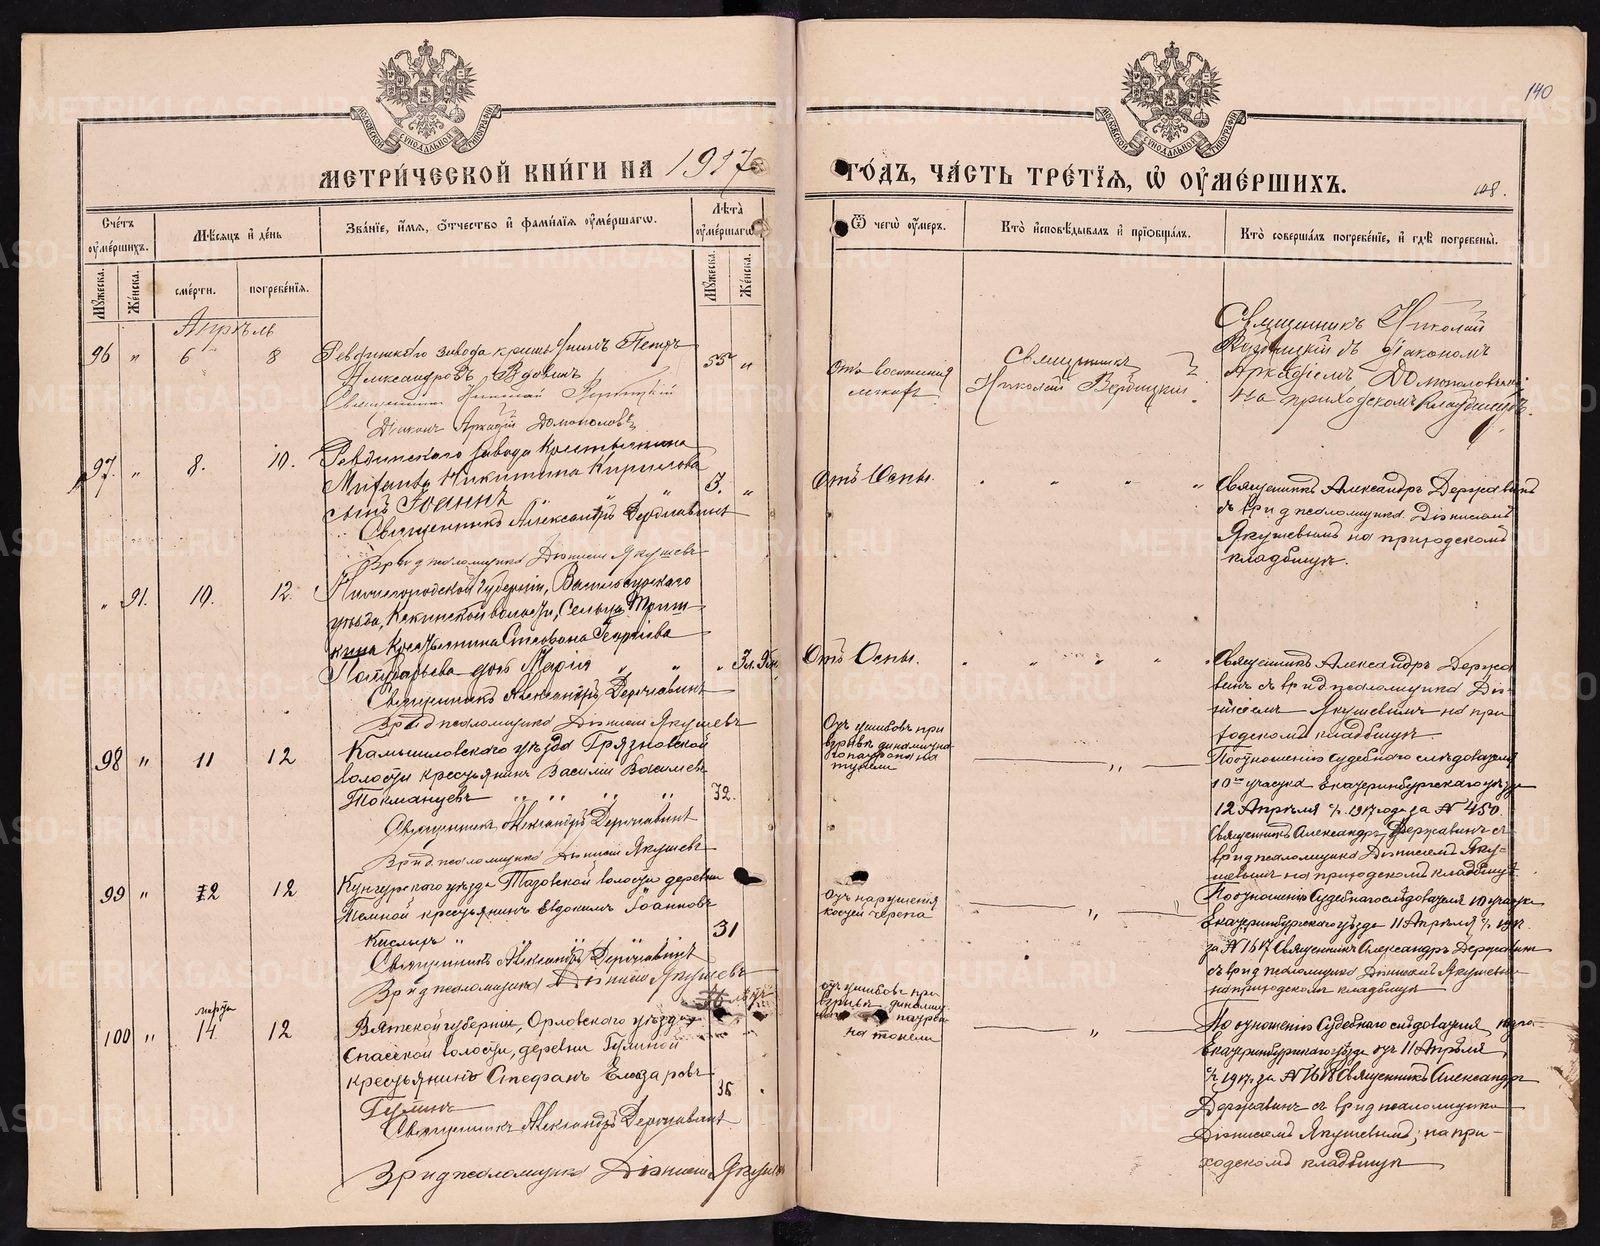 140
МОСКОВСКОЙ СѴНОДАЛЬНОЙ ТИПОГРАФІИ
МОСКОВСКОЙ СѴНОДАЛЬНОЙ ТИПОГРАФІИ
МЕТРИ́ЧЕСКОЙ КНИ́ГИ НА 1917
ГО́ДЪ, ЧА́СТЬ ТРЕ́ТІѦ, Ѽ ОУ҆МЕ́РШИХЪ.
148.
Сче́тъ оу҆ме́ршихъ.
Мѣ́сяцъ и҆ де́нь
Зва́нїе, и҆́мѧ, ѻ҆́тчество и҆ фами́лїѧ оу҆ме́ршагѡ.
Лѣ́та оу҆ме́ршагѡ
Ѿ чегѡ̀ оу҆́меръ.
Кто̀ и҆сповѣ́дывалъ и҆ прїѡбща́лъ.
Кто̀ соверша́лъ погребе́нїе, и҆ гдѣ̀ погребены̀.
Мꙋ́жеска.
Же́нска.
сме́рти.
погребе́нїѧ.
Мꙋ́жеска.
Же́нска.
Апрѣль
96 " 6 8
Ревдинскаго завода крест. Петръ
Александровъ Вдовинъ
55 "
Священникъ Николай
Діаконъ Аркадій Домополовъ
Отъ воспаленія
легкихъ
Священникъ
Николай
Священникъ Николай
съ діакономъ
Аркадіемъ Домополовымъ
на приходскомъ кладбищѣ.
97. " 8. 10.
Ревдинскаго завода крестьянина
Михаила Никитина Кирилова
сынъ Іоаннъ " "
3. "
Священникъ Александръ Державинъ
Врид псаломщика Діонисій Якушевъ
Отъ Оспы.
Священникъ Александръ Державинъ
съ врид псаломщика Діонисіемъ
Якушевымъ на приходскомъ
кладбищѣ.
" 91. 10. 12.
Нижегородской губерніи, Васильсурскаго
уѣзда, волости, Сельца
крестьянина Георгіева
дочь Марія " "
" 3 л.
Священникъ Александръ Державинъ
Врид псаломщика Діонисій Якушевъ
Отъ Оспы.
Священникъ Александръ Держа
винъ съ врид псаломщика Діо
нисіемъ Якушевымъ на при
ходскомъ кладбищѣ
98 " 11 12
Камышловскаго уѣзда Грязновской
волости крестьянинъ Василій Васильевъ
Токманцевъ " " " " "
32.
Священникъ Александръ Державинъ
Врид псаломщика Діонисій Якушевъ
Отъ ушибовъ при
взрывѣ динамитна
го патрона на
тунели
По отношенію Судебнаго слѣдователя
10го участка Екатеринбургскаго уѣзда
12 Апрѣля с/г. 1917 года за № 450.
Священникъ Александръ Державинъ съ
врид псаломщика Діонисіемъ Яку-
шевымъ на приходскомъ кладбищѣ
99 " 12 12
Кунгурскаго уѣзда Тазовской волости деревни
Темной крестьянинъ Евдокимъ Іоанновъ
Кислыхъ "
31
Священникъ Александръ Державинъ
Врид псаломщика Діонисій Якушевъ
Отъ нарушенія
костей черепа
По отношенію Судебнаго слѣдователя 10 участка
Екатеринбургскаго уѣзда 11 Апрѣля с/г
за № 1617 Священникъ Александръ Державинъ
съ врид псаломщика Діонисіемъ Якушевымъ
на приходскомъ кладбищѣ
марта
100 " 14 12
Вятской губерніи, Орловскаго уѣзда
Спасской волости, деревни Гулиной
крестьянинъ Стефанъ Елеазаровъ
Гулинъ
36
Священникъ Александръ Державинъ
Врид псаломщика Діонисій Якушевъ
отъ ушибовъ при
взрывѣ динамит
патрона
на тонели
По отношенію Судебнаго слѣдователя
Екатеринбургскаго уѣзда отъ 11 Апрѣля
с/г 1917 за № 1618 Священникъ Александръ
Державинъ съ врид псаломщика
Діонисіемъ Якушевымъ, на при-
ходскомъ кладбищѣ
METRIKI.GASO-URAL.RU